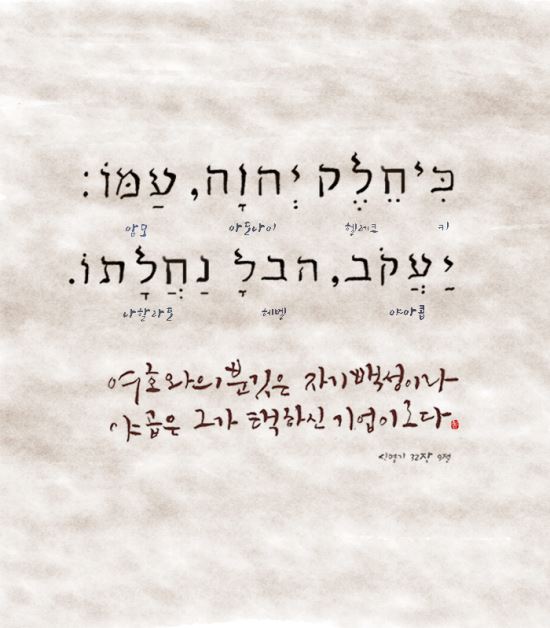 כִּי חֵלֶק יְהוָֹה, עַמּוֹ:
키 헬레크 아도나이 암모
יַעֲקֹב, הבלָ נַחֲלָתוֹ.
야아콥 헤벨 나할라토
여호와의 분깃은 자기 백성이라
야곱은 그가 택하신 기업이로다
신명기 32장 9절